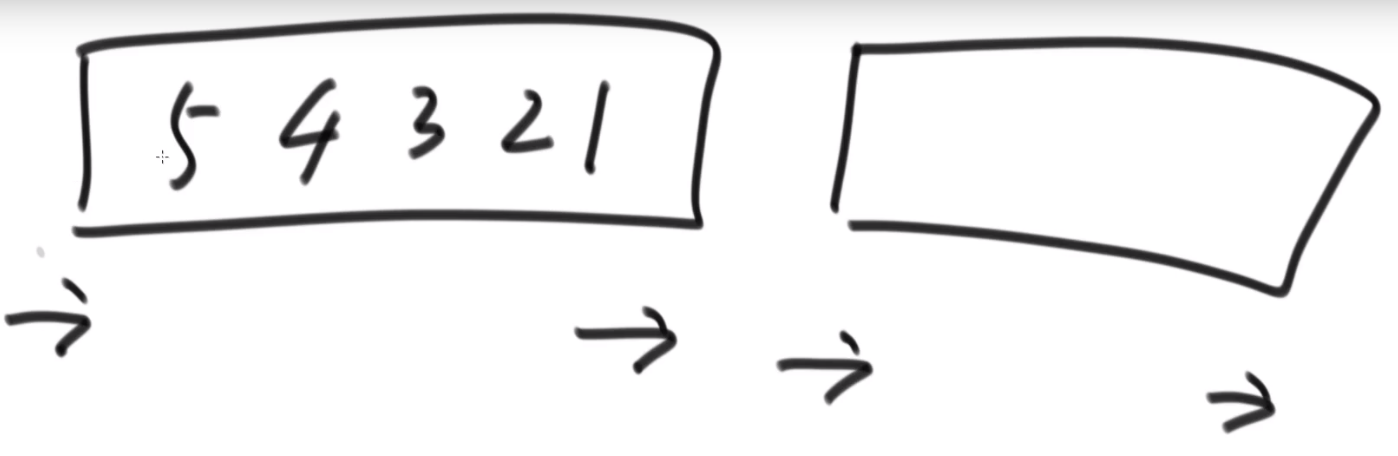 5 4 3 2 1